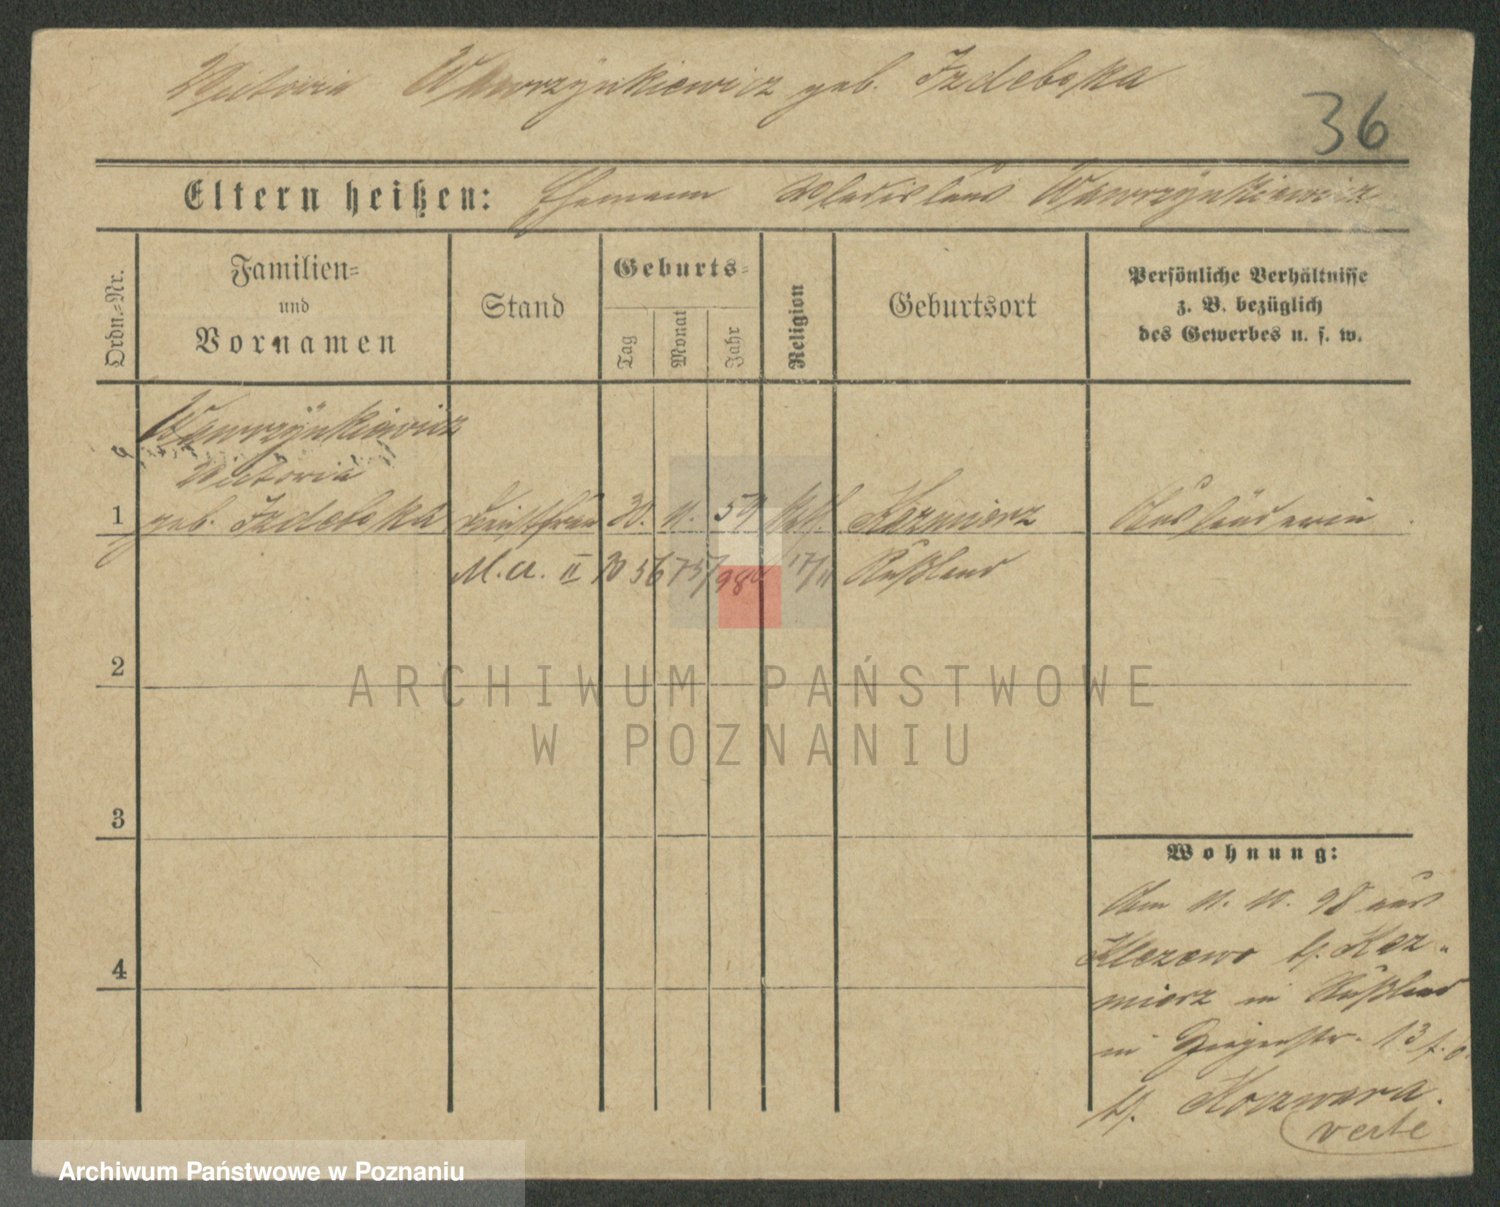 Victoria Wawrzynkiewicz geb. Izdebska
36
Eltern heißen: Ehemann Wladislaus Wawrzynkiewicz
Ordn.-Nr.
Familien-
und
Vornamen
Stand
Geburts-
Tag
Monat
Jahr
Religion
Geburtsort
Persönliche Verhältnisse
z. B. bezüglich
des Gewerbes u. s. w.
Wawrzynkiewicz
Victoria
1 geb. Izdebska 30. 11. 59 kath. Kazmierz Ausländerin
M. A. II Rußland
2
3
4
Wohnung:
Am 11. 10. 98 aus
b. Kaz-
mierz in Rußland
in 13
b. Koczwara.
verte
ARCHIWUM PAŃSTWOWE
W POZNANIU
Archiwum Państwowe w Poznaniu